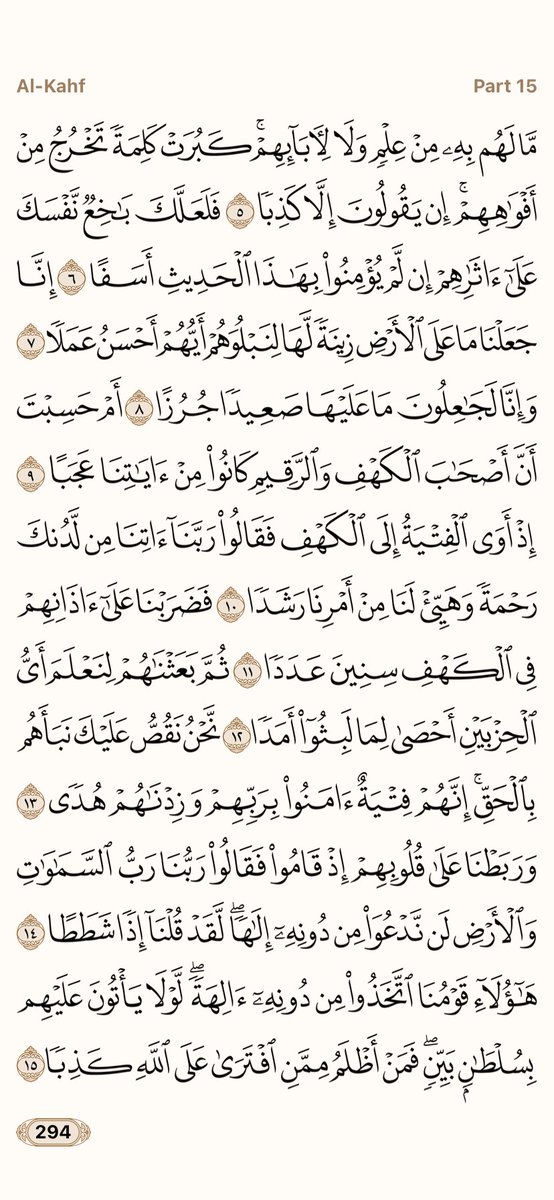 Al-Kahf Part 15
مَّا لَهُم بِهِۦ مِنْ عِلْمٍ وَلَا لِـَٔابَآئِهِمْ ۚ كَبُرَتْ كَلِمَةً تَخْرُجُ مِنْ
أَفْوَٰهِهِمْ ۚ إِن يَقُولُونَ إِلَّا كَذِبًا ٥ فَلَعَلَّكَ بَـٰخِعٌ نَّفْسَكَ
عَلَىٰٓ ءَاثَـٰرِهِمْ إِن لَّمْ يُؤْمِنُوا۟ بِهَـٰذَا ٱلْحَدِيثِ أَسَفًا ٦ إِنَّا
جَعَلْنَا مَا عَلَى ٱلْأَرْضِ زِينَةً لَّهَا لِنَبْلُوَهُمْ أَيُّهُمْ أَحْسَنُ عَمَلًا ٧
وَإِنَّا لَجَـٰعِلُونَ مَا عَلَيْهَا صَعِيدًا جُرُزًا ٨ أَمْ حَسِبْتَ
أَنَّ أَصْحَـٰبَ ٱلْكَهْفِ وَٱلرَّقِيمِ كَانُوا۟ مِنْ ءَايَـٰتِنَا عَجَبًا ٩
إِذْ أَوَى ٱلْفِتْيَةُ إِلَى ٱلْكَهْفِ فَقَالُوا۟ رَبَّنَآ ءَاتِنَا مِن لَّدُنكَ
رَحْمَةً وَهَيِّئْ لَنَا مِنْ أَمْرِنَا رَشَدًا ١٠ فَضَرَبْنَا عَلَىٰٓ ءَاذَانِهِمْ
فِى ٱلْكَهْفِ سِنِينَ عَدَدًا ١١ ثُمَّ بَعَثْنَـٰهُمْ لِنَعْلَمَ أَىُّ
ٱلْحِزْبَيْنِ أَحْصَىٰ لِمَا لَبِثُوٓا۟ أَمَدًا ١٢ نَّحْنُ نَقُصُّ عَلَيْكَ نَبَأَهُم
بِٱلْحَقِّ ۚ إِنَّهُمْ فِتْيَةٌ ءَامَنُوا۟ بِرَبِّهِمْ وَزِدْنَـٰهُمْ هُدًى ١٣
وَرَبَطْنَا عَلَىٰ قُلُوبِهِمْ إِذْ قَامُوا۟ فَقَالُوا۟ رَبُّنَا رَبُّ ٱلسَّمَـٰوَٰتِ
وَٱلْأَرْضِ لَن نَّدْعُوَا۟ مِن دُونِهِۦٓ إِلَـٰهًا ۖ لَّقَدْ قُلْنَآ إِذًا شَطَطًا ١٤
هَـٰٓؤُلَآءِ قَوْمُنَا ٱتَّخَذُوا۟ مِن دُونِهِۦٓ ءَالِهَةً ۖ لَّوْلَا يَأْتُونَ عَلَيْهِم
بِسُلْطَـٰنٍۭ بَيِّنٍ ۖ فَمَنْ أَظْلَمُ مِمَّنِ ٱفْتَرَىٰ عَلَى ٱللَّهِ كَذِبًا ١٥
294